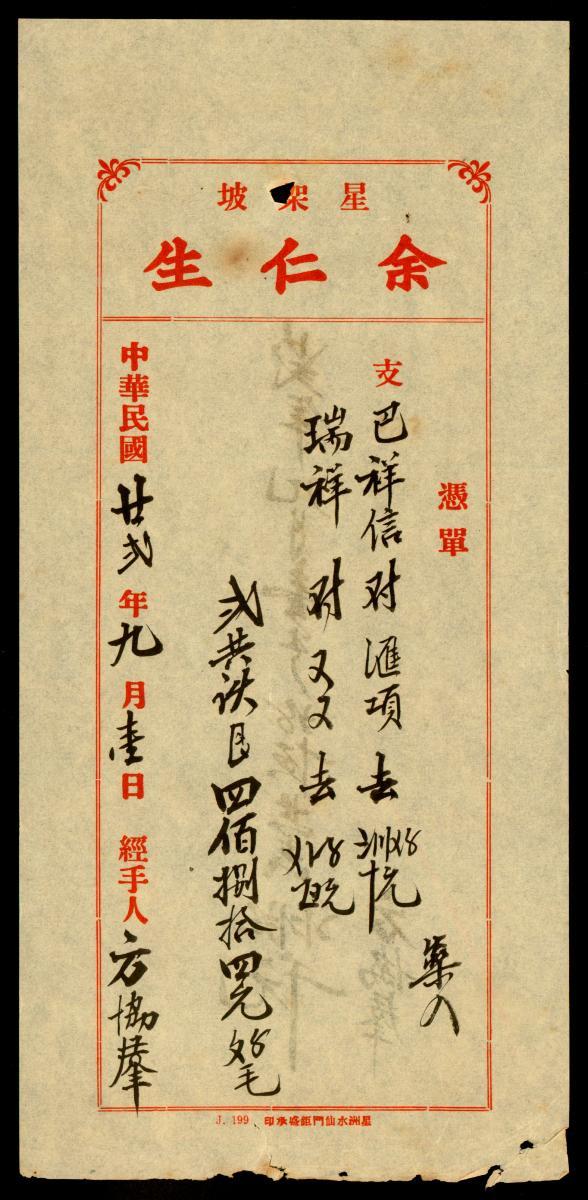 星架坡
余仁生
憑單
藥入
支 巴祥信对滙項去
瑞祥 对又又去
弍共伏艮四佰捌拾四元
中華民國廿弍年九月壹日 經手人 方協肇
J. 199 星洲水仙門鉅盛承印